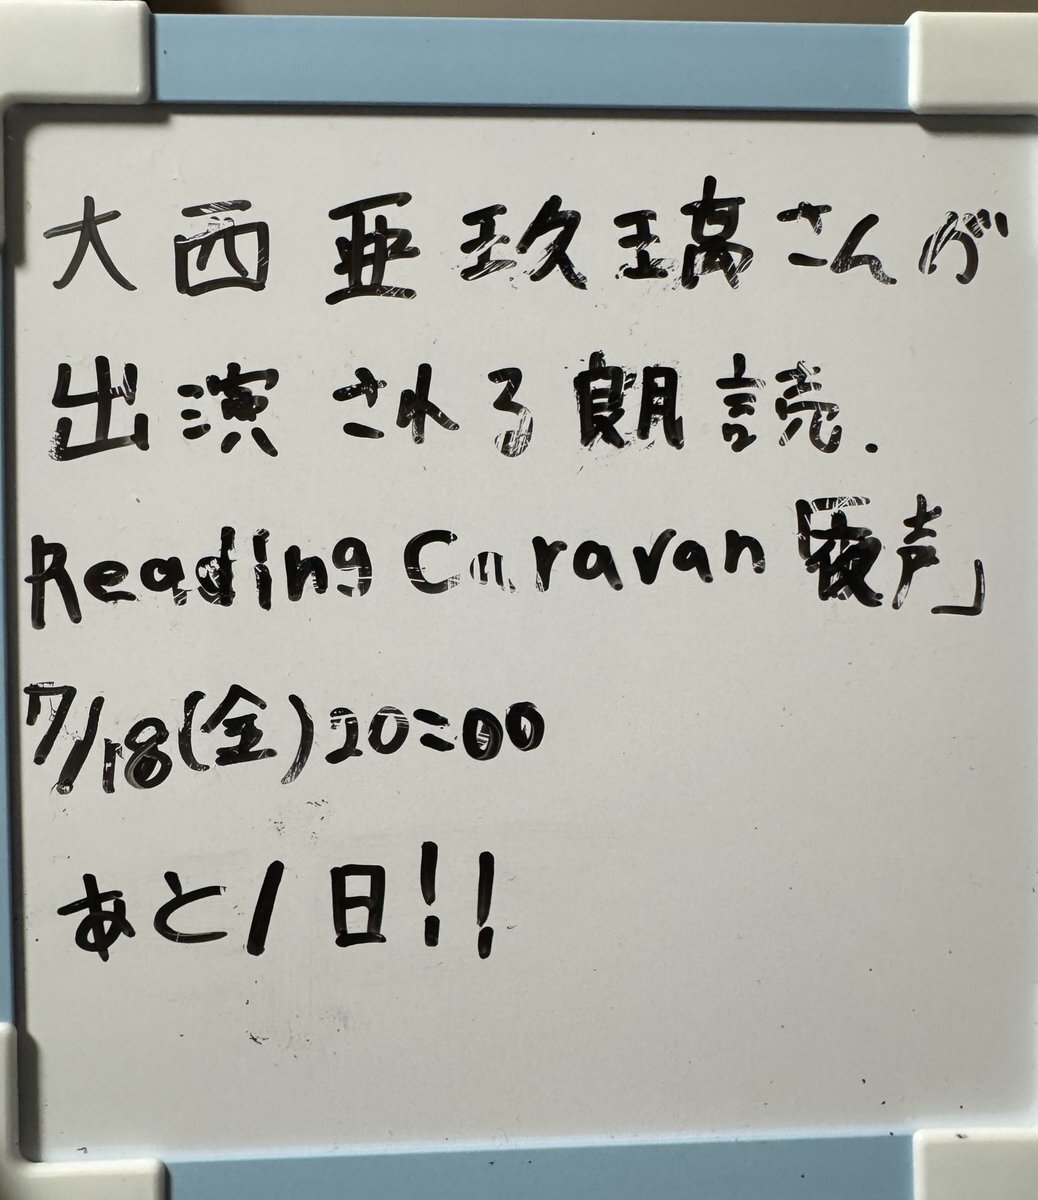 大西亜玖璃さんが
出演される朗読.
Reading Caravan「夜声」
7/18(金)20:00
あと1日!!